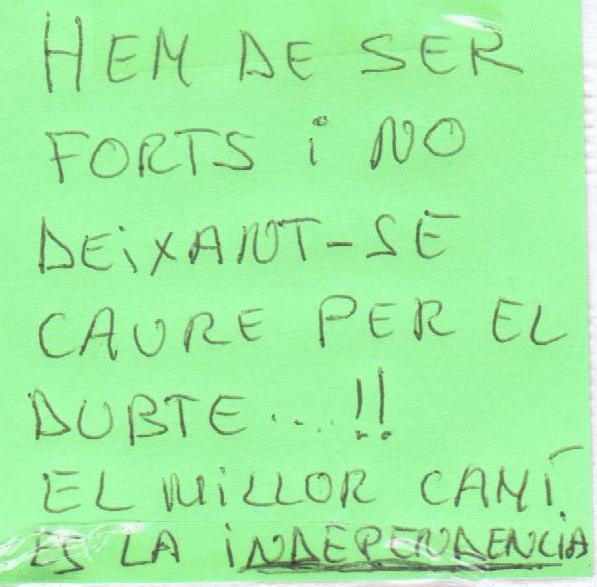 HEM DE SER
FORTS i NO
DEiXANT-SE
CAURE PER EL
DUBTE....!!
EL MiLLOR CAMÍ
ES LA iNDEPENDENCiA